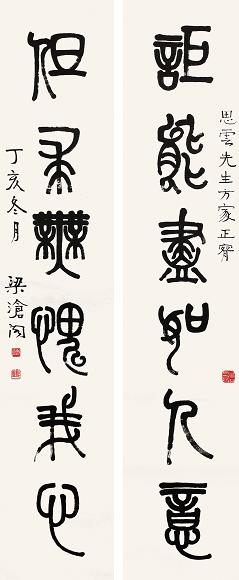 思雲先生方家正
詎能盡如人意
但求無愧我心
丁亥冬月 梁滄